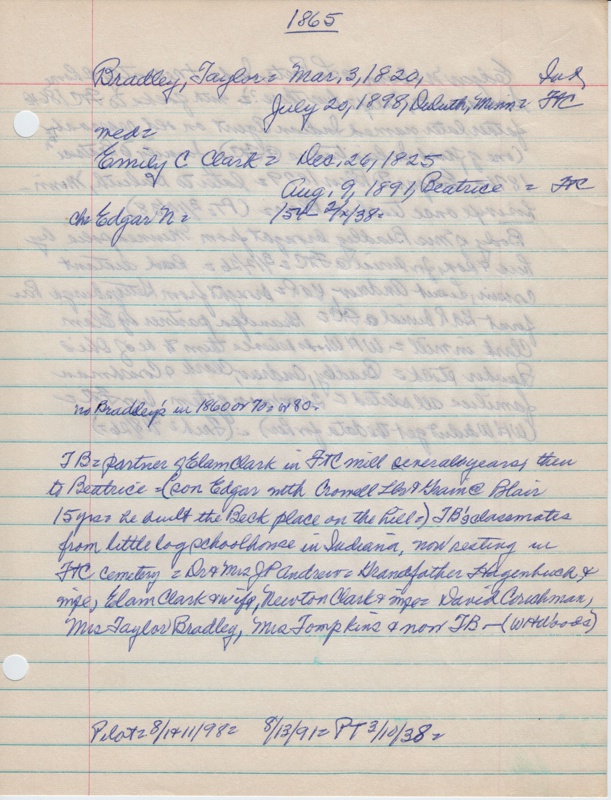 1865
Bradley, Taylor = Mar, 3, 1820, Ind,
July 20, 1898, Duluth, Minn = FtC
med=
Emily C Clark = Dec, 26, 1825
Aug, 9, 1891, Beatrice = FtC
ch= Edgar N =
no Bradley's in 1860 or 70 = or 80 =
TB = partner of Elam Clark in FtC mill several years, then
to Beatrice = (son Edgar with Crowell Lbr & Grain @ Blair
15 yrs = he built the Beck place on the hill =) TB's classmates
from little log schoolhouse in Indiana, now resting in
FtC cemetery = Dr & Mrs JP Andrew = Grandfather Hagenbuck &
wife, Elam Clark & wife, Newton Clark & wife = David Couchman,
Mrs Taylor Bradley, Mrs Tompkins & now TB — (WHWoods)
Pilot = 8/1+11/98 = 8/13/91 = PT 3/10/38 =